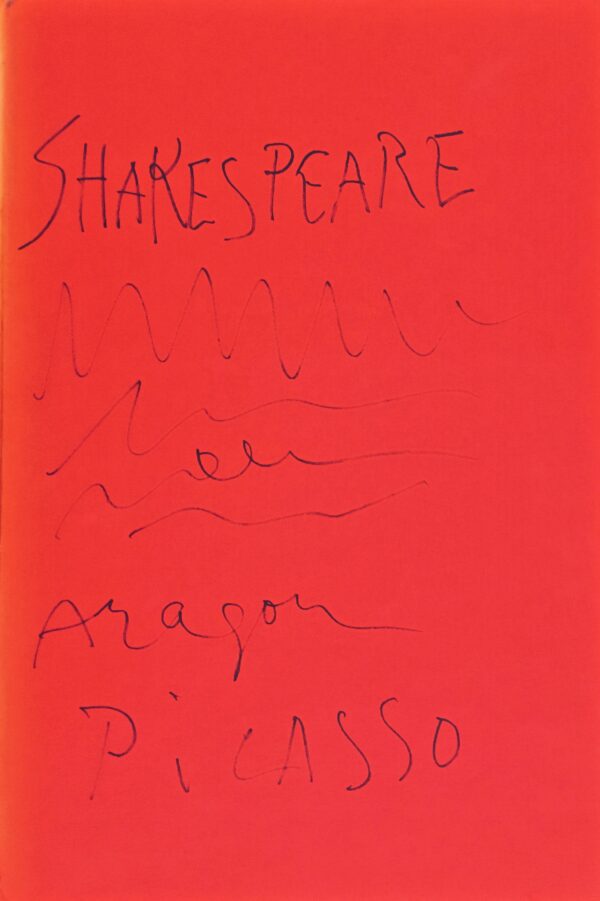 SHAKESPEARE
Aragon
PiCASSO